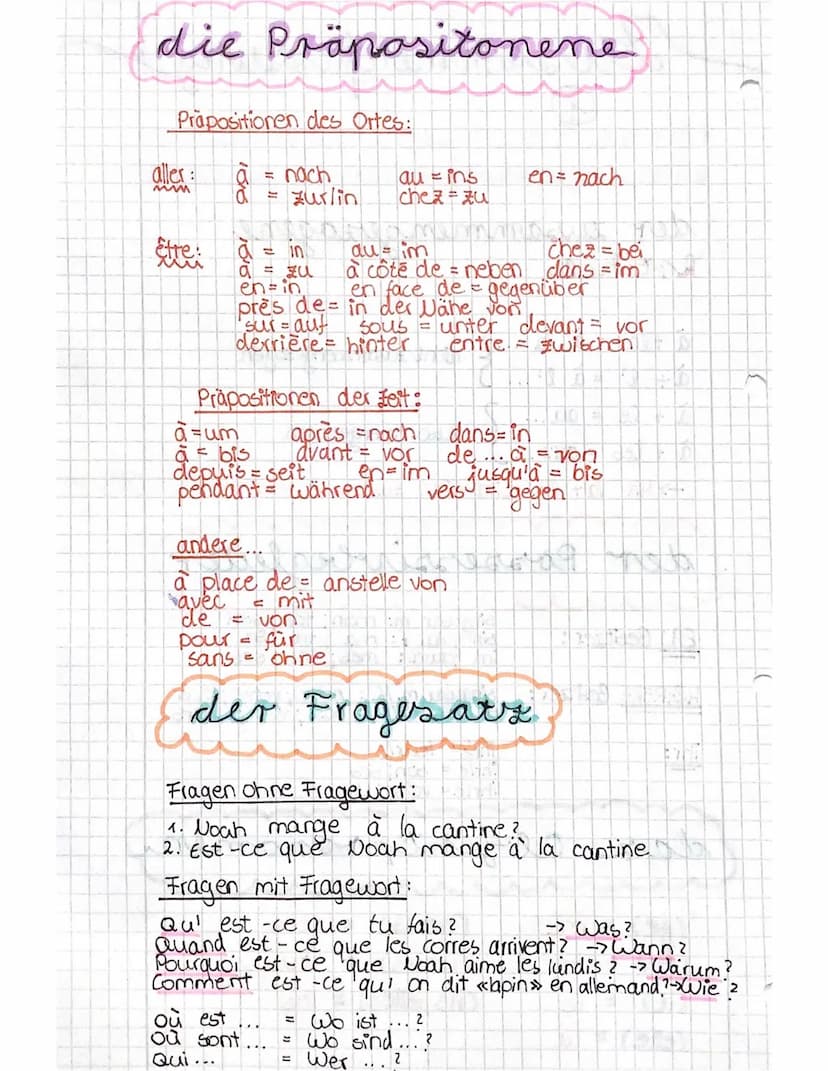 die Präpositonene
Präpositionen des Ortes:
aller: à = nach au = ins en = nach
à = zur/in chez = zu
être: à = in au = im chez = bei
à = zu à côté de = neben dans = im
en = in en face de = gegenüber
près de = in der Nähe von
sur = auf sous = unter devant = vor
derrière = hinter entre = zwischen
Präpositionen der Zeit:
à = um après = nach dans = in
à = bis avant = vor de ... à = von
depuis = seit en = im jusqu'à = bis
pendant = während vers = gegen
andere...
à place de = anstelle von
avec = mit
de = von
pour = für
sans = ohne
der Fragesatz
Fragen ohne Fragewort:
1. Noah mange à la cantine?
2. Est-ce que Noah mange à la cantine
Fragen mit Fragewort:
Qu' est-ce que tu fais? -> Was?
Quand est-ce que les corres arrivent? -> Wann?
Pourquoi est-ce que Noah aime les lundis? -> Warum?
Comment est-ce qu' on dit «lapin» en allemand? -> Wie?
où est ... = Wo ist ...?
où sont ... = Wo sind ...?
Qui ... = Wer ...?